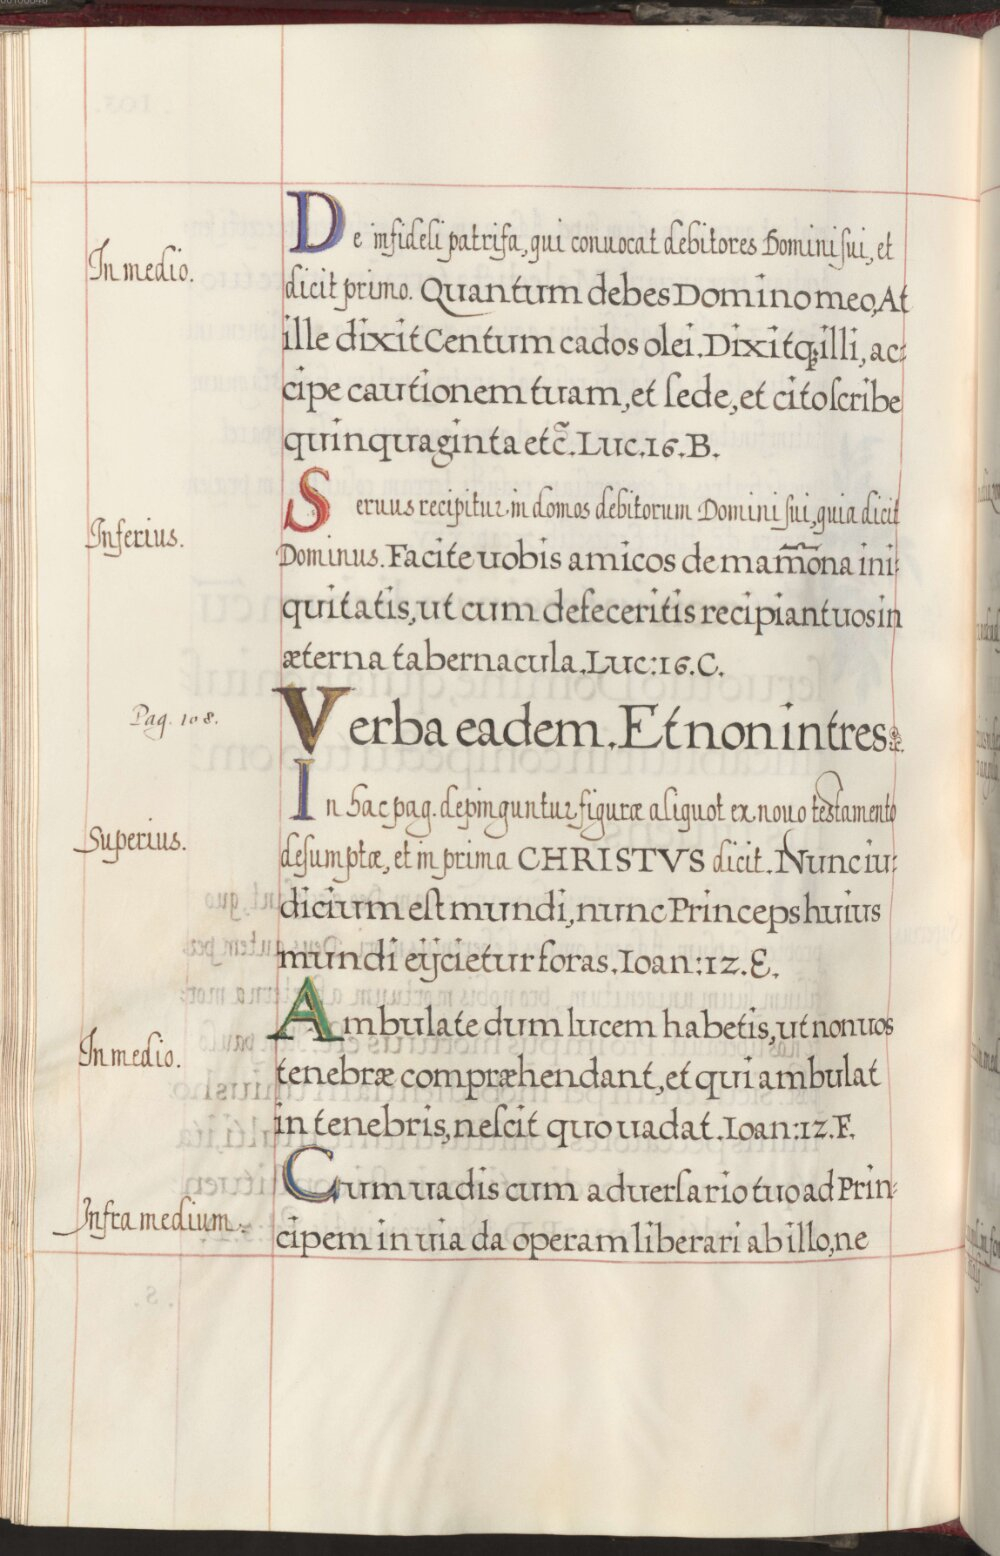 In medio.
De infideli patrifa, qui conuocat debitores Domini sui, et
dicit primo. Quantum debes Domino meo, At
ille dixit Centum cados olei. Dixitq; illi, ac:
cipe cautionem tuam, et sede, et cito scribe
quinquaginta etc̃. Luc. 16. B.
Inferius.
Seruus recipitur in domos debitorum Domini sui, quia dicit
Dominus. Facite uobis amicos de mam̃ona ini:
quitatis, ut cum defeceritis recipiant uos in
æterna tabernacula. Luc: 16. C.
Pag. 108.
Verba eadem. Et non intres &c.
Superius.
In hac pag. depinguntur figuræ aliquot ex nouo testamento
desumptæ, et in prima CHRISTVS dicit. Nunc iu:
dicium est mundi, nunc Princeps huius
mundi eijcietur foras. Ioan: 12. E.
In medio.
Ambulate dum lucem habetis, ut non uos
tenebræ compræhendant, et qui ambulat
in tenebris, nescit quo uadat. Ioan: 12. F.
Infra medium.
Cum uadis cum aduersario tuo ad Prin:
cipem in uia da operam liberari ab illo, ne